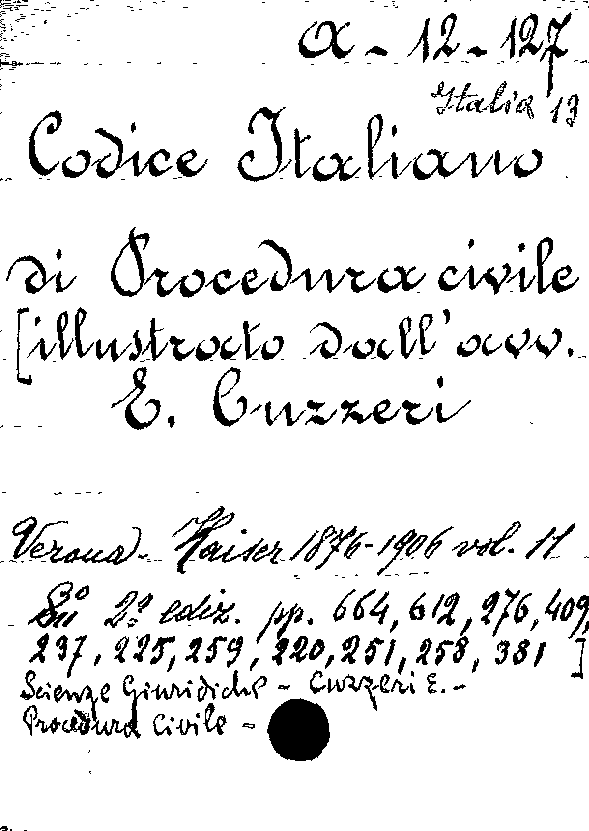 a - 12 - 127
Italia 13
Codice Italiano
di Procedura civile
[illustrato dall'avv.
E. Cuzzeri
Verona - Kaiser 1876-1906 vol. 11
8º 2ª ediz. pp. 664, 612, 276, 409,
237, 225, 259, 220, 251, 258, 381 ]
Scienze Giuridiche - Cuzzeri E. -
Procedura Civile -